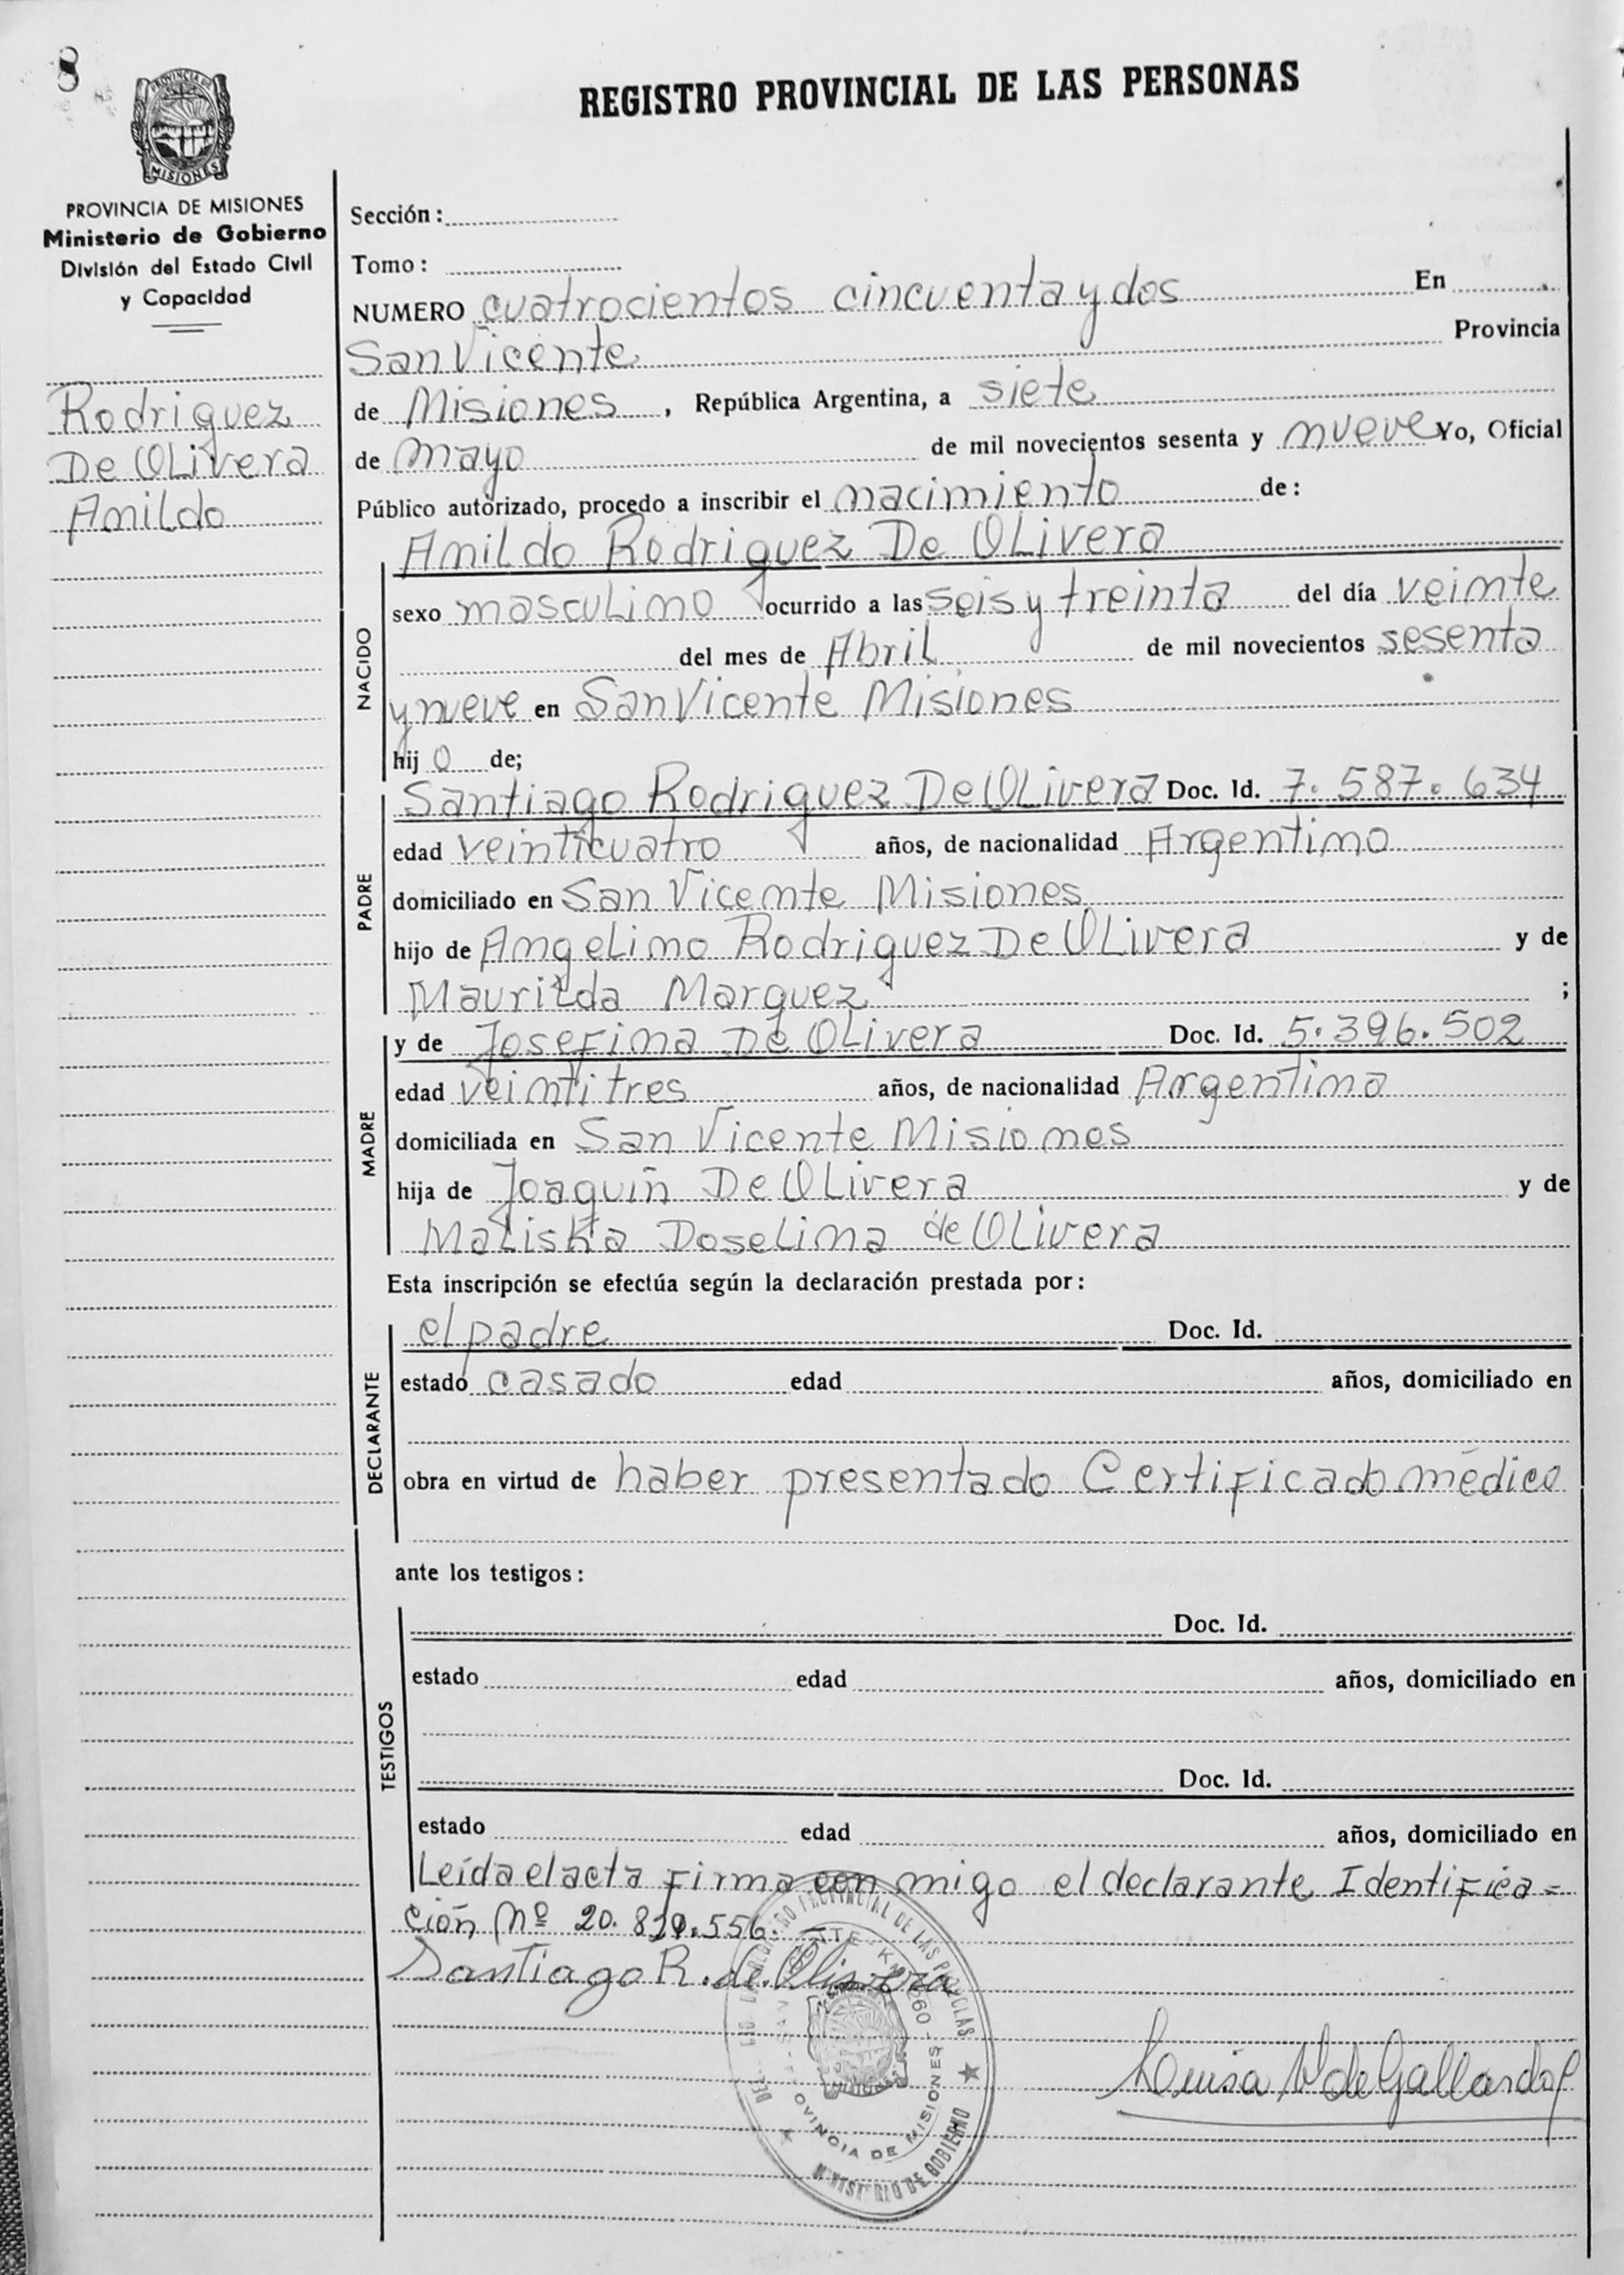 8
REGISTRO PROVINCIAL DE LAS PERSONAS
PROVINCIA DE
MISIONES
PROVINCIA DE MISIONES
Ministerio de Gobierno
División del Estado Civil
y Capacidad
Rodriguez
De Olivera
Anildo
Sección:
Tomo:
NUMERO cuatrocientos cincuenta y dos En
San Vicente Provincia
de Misiones, República Argentina, a siete
de mayo de mil novecientos sesenta y nueve Yo, Oficial
Público autorizado, procedo a inscribir el nacimiento de:
Anildo Rodriguez De Olivera
NACIDO
sexo masculino ocurrido a las seis y treinta del día veinte
del mes de Abril de mil novecientos sesenta
y nueve en San Vicente Misiones
hij o de;
PADRE
Santiago Rodriguez De Olivera Doc. Id. 7.587.634
edad veinticuatro años, de nacionalidad Argentino
domiciliado en San Vicente Misiones
hijo de Angelino Rodriguez De Olivera y de
Maurilda Marquez ;
MADRE
y de Josefina De Olivera Doc. Id. 5.396.502
edad veintitres años, de nacionalidad Argentina
domiciliada en San Vicente Misiones
hija de Joaquin De Olivera y de
Maliska Doselina de Olivera
Esta inscripción se efectúa según la declaración prestada por:
DECLARANTE
el padre Doc. Id.
estado casado edad años, domiciliado en
obra en virtud de haber presentado Certificado médico
ante los testigos:
TESTIGOS
Doc. Id.
estado edad años, domiciliado en
Doc. Id.
estado edad años, domiciliado en
Leída el acta firma con migo el declarante Identifica=
ción Nº
Santiago R. de Olivera
REGISTRO PROVINCIAL DE LAS PERSONAS
PROVINCIA DE MISIONES
MINISTERIO DE GOBIERNO
Luisa de Gallardo